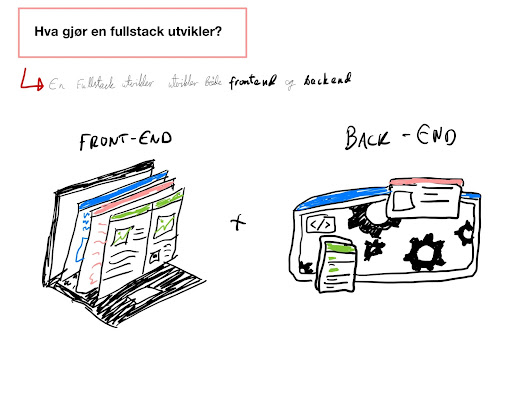 Hva gjør en fullstack utvikler?
En Fullstack utvikler utvikler både frontend og backend
FRONT-END
BACK-END
+
</>